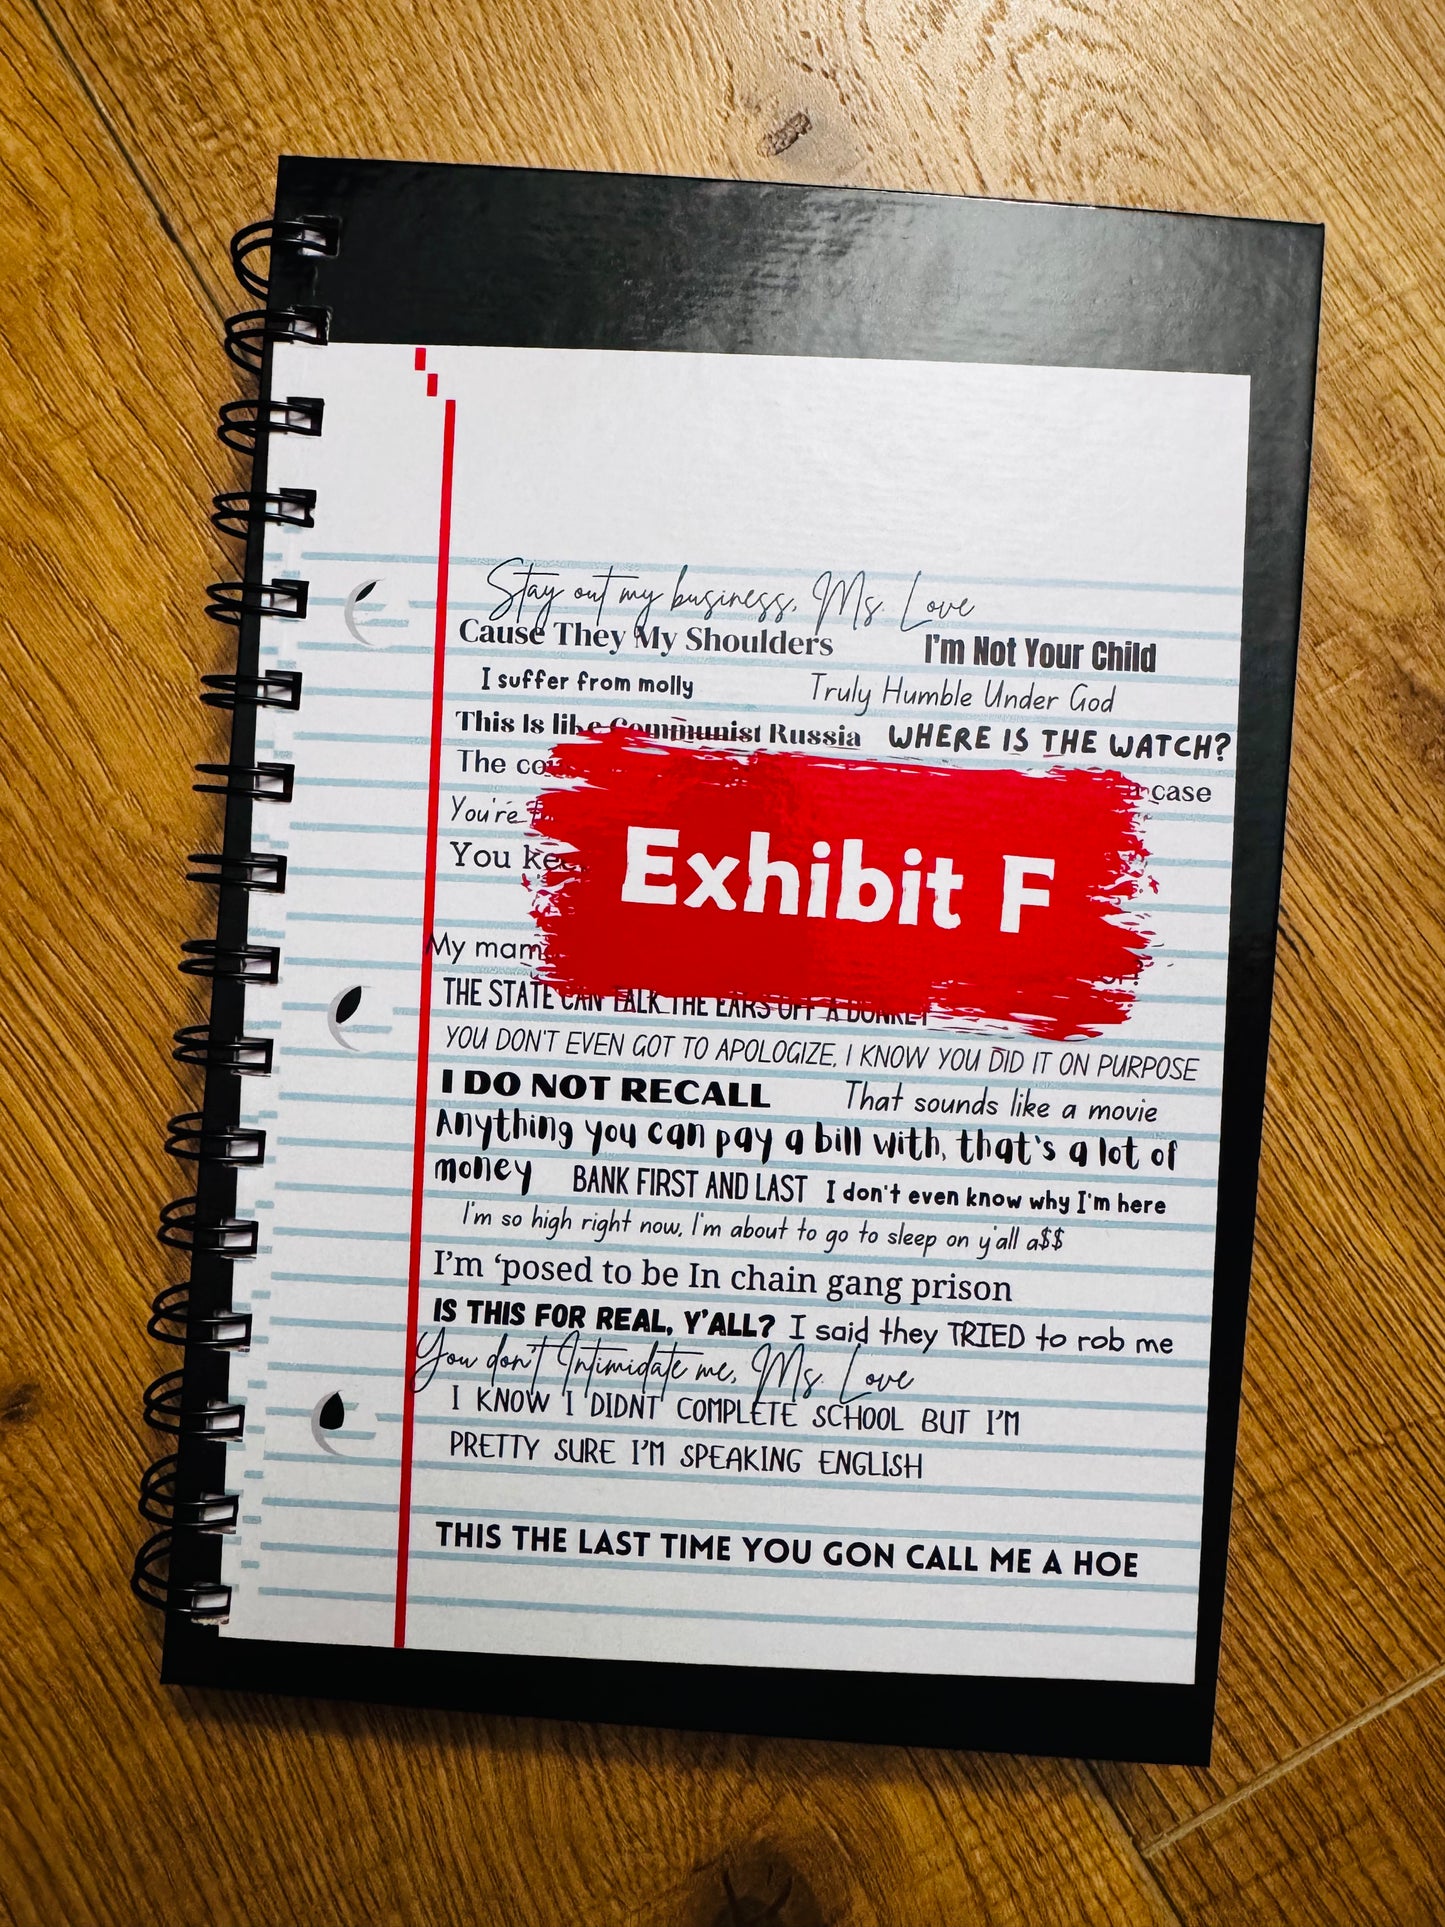 Stay out my business, Ms. Love
Cause They My Shoulders I'm Not Your Child
I suffer from molly Truly Humble Under God
This Is like Communist Russia WHERE IS THE WATCH?
The case
You're
You
Exhibit F
My
THE STATE CAN TALK THE EARS OFF A DONKEY
YOU DON'T EVEN GOT TO APOLOGIZE, I KNOW YOU DID IT ON PURPOSE
I DO NOT RECALL That sounds like a movie
Anything you can pay a bill with, that's a lot of
money BANK FIRST AND LAST I don't even know why I'm here
I'm so high right now, I'm about to go to sleep on y'all a$$
I'm 'posed to be In chain gang prison
IS THIS FOR REAL, Y'ALL? I said they TRIED to rob me
You don't Intimidate me, Ms. Love
I KNOW I DIDNT COMPLETE SCHOOL BUT I'M
PRETTY SURE I'M SPEAKING ENGLISH
THIS THE LAST TIME YOU GON CALL ME A HOE